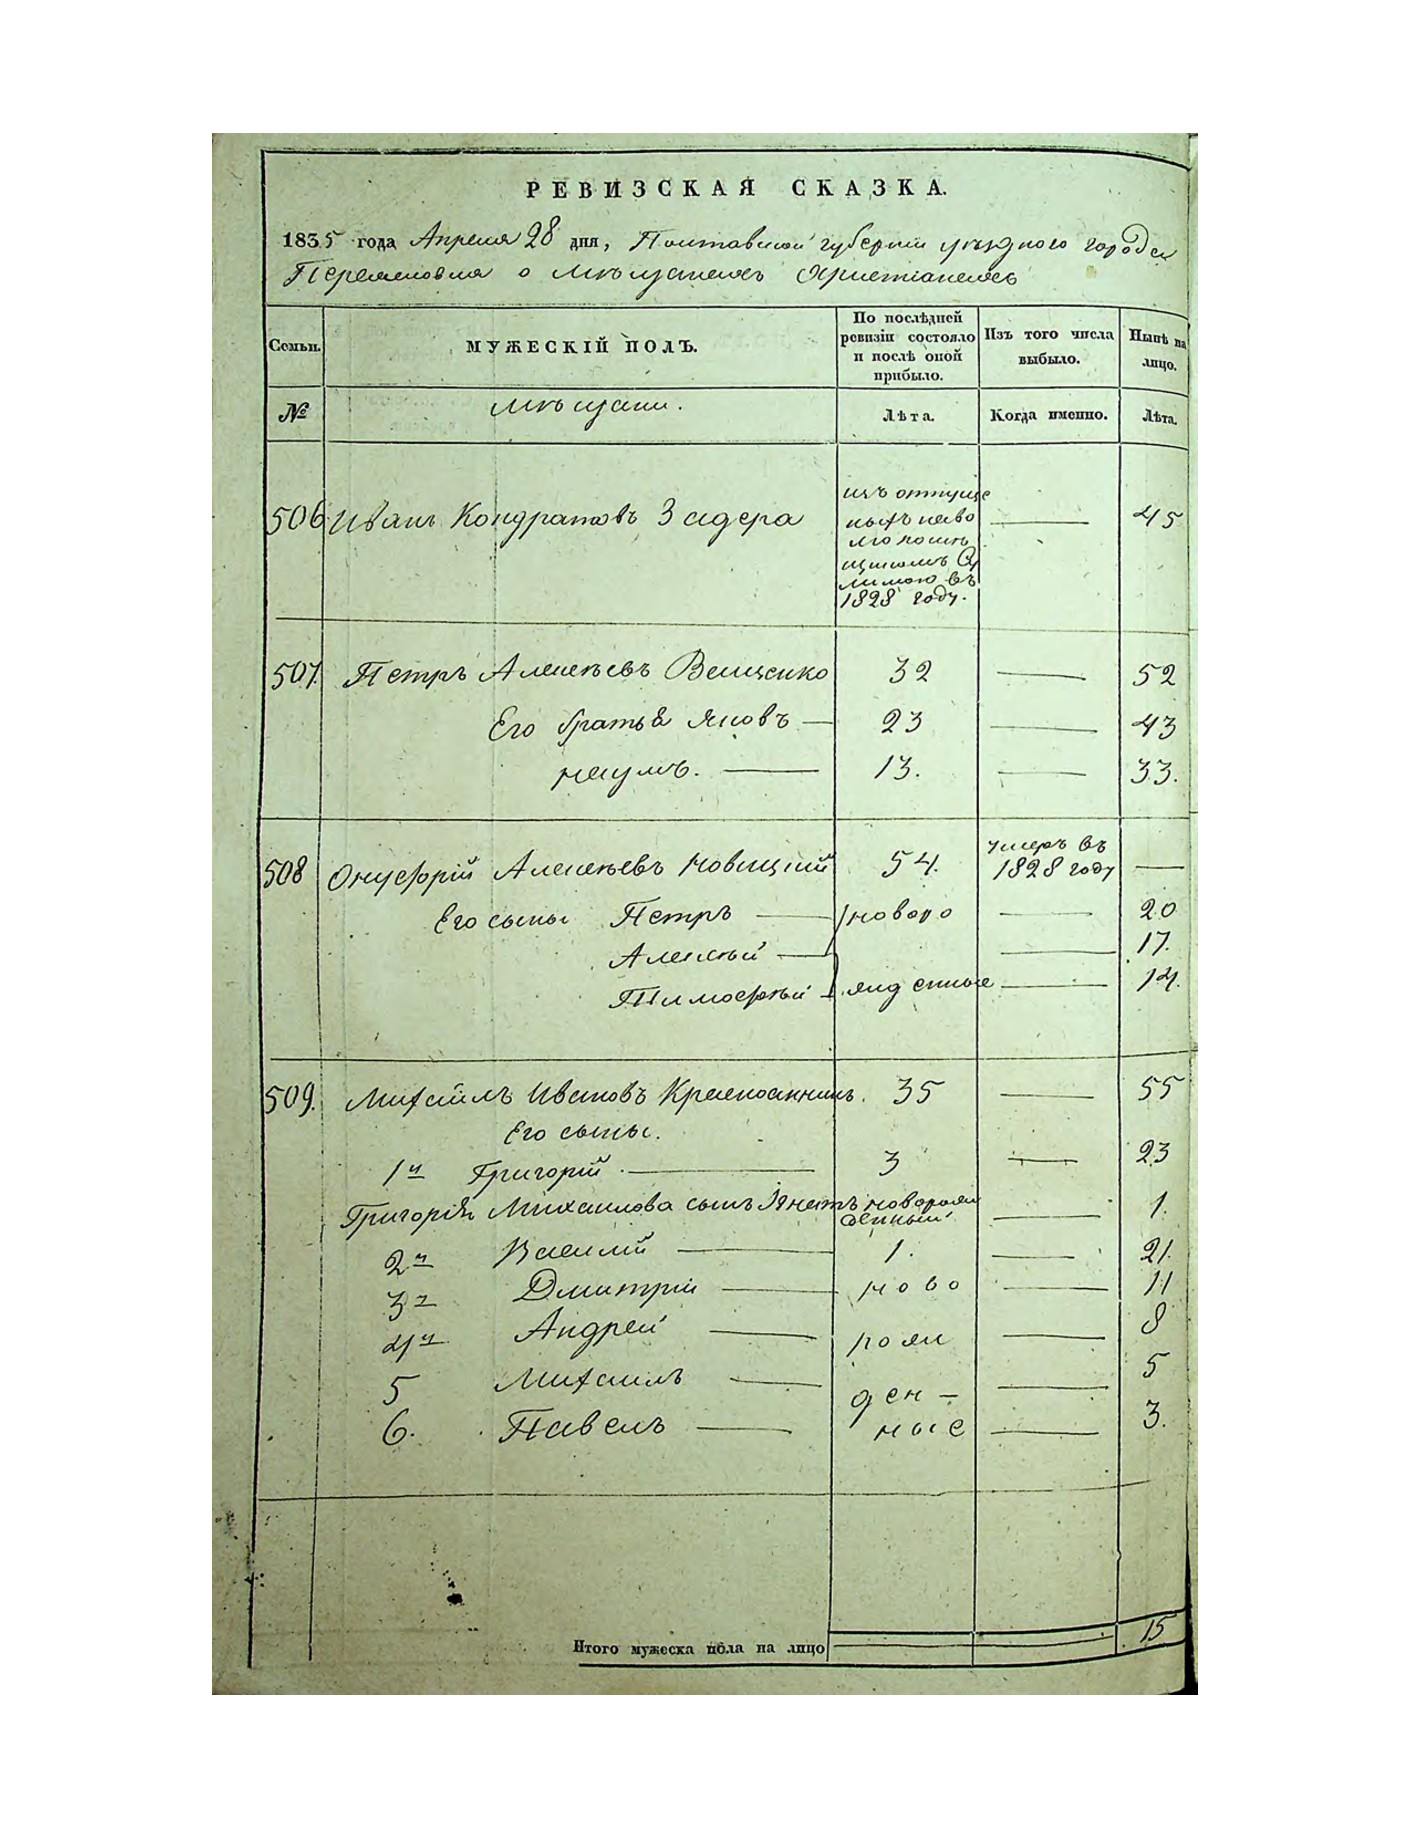 РЕВИЗСКАЯ СКАЗКА.
1835 года Апреля 28 дня, Полтавской губернии уѣзднаго города
Переяслова о мѣщанахъ Христіанахъ
Семьи. МУЖЕСКІЙ ПОЛЪ. По послѣдней ревизіи состояло и послѣ оной прибыло. Изъ того числа выбыло. Нынѣ на лицо.
№ мѣщане. Лѣта. Когда именно. Лѣта.
506 Иванъ Кондратовъ 45
изъ отпуще
ныхъ на во
лю помѣ
щикомъ
въ
1828 году.
507. Петръ Алексѣевъ Вещенко 32 — 52
Его братья Яковъ — 23 — 43
Наумъ. — 13. — 33.
508 Онуфрій Алексѣевъ Новицкій 54. умеръ въ 1828 году —
Его сыны Петръ — новоро — 20
Алексѣй — — 17.
Тимофѣй — жденные — 14.
509. Михаилъ Ивановъ 35 — 55
Его сыны.
1й Григорій — 3 — 23
Григорія Михаилова сынъ Игнатъ новорож
денный — 1.
2й Василій — 1. — 21.
3й Дмитрій — ново — 11
4й Андрей — рож — 8
5 Михаилъ — ден- — 5
6. Павелъ — ные — 3.
Итого мужеска пола на лицо 15